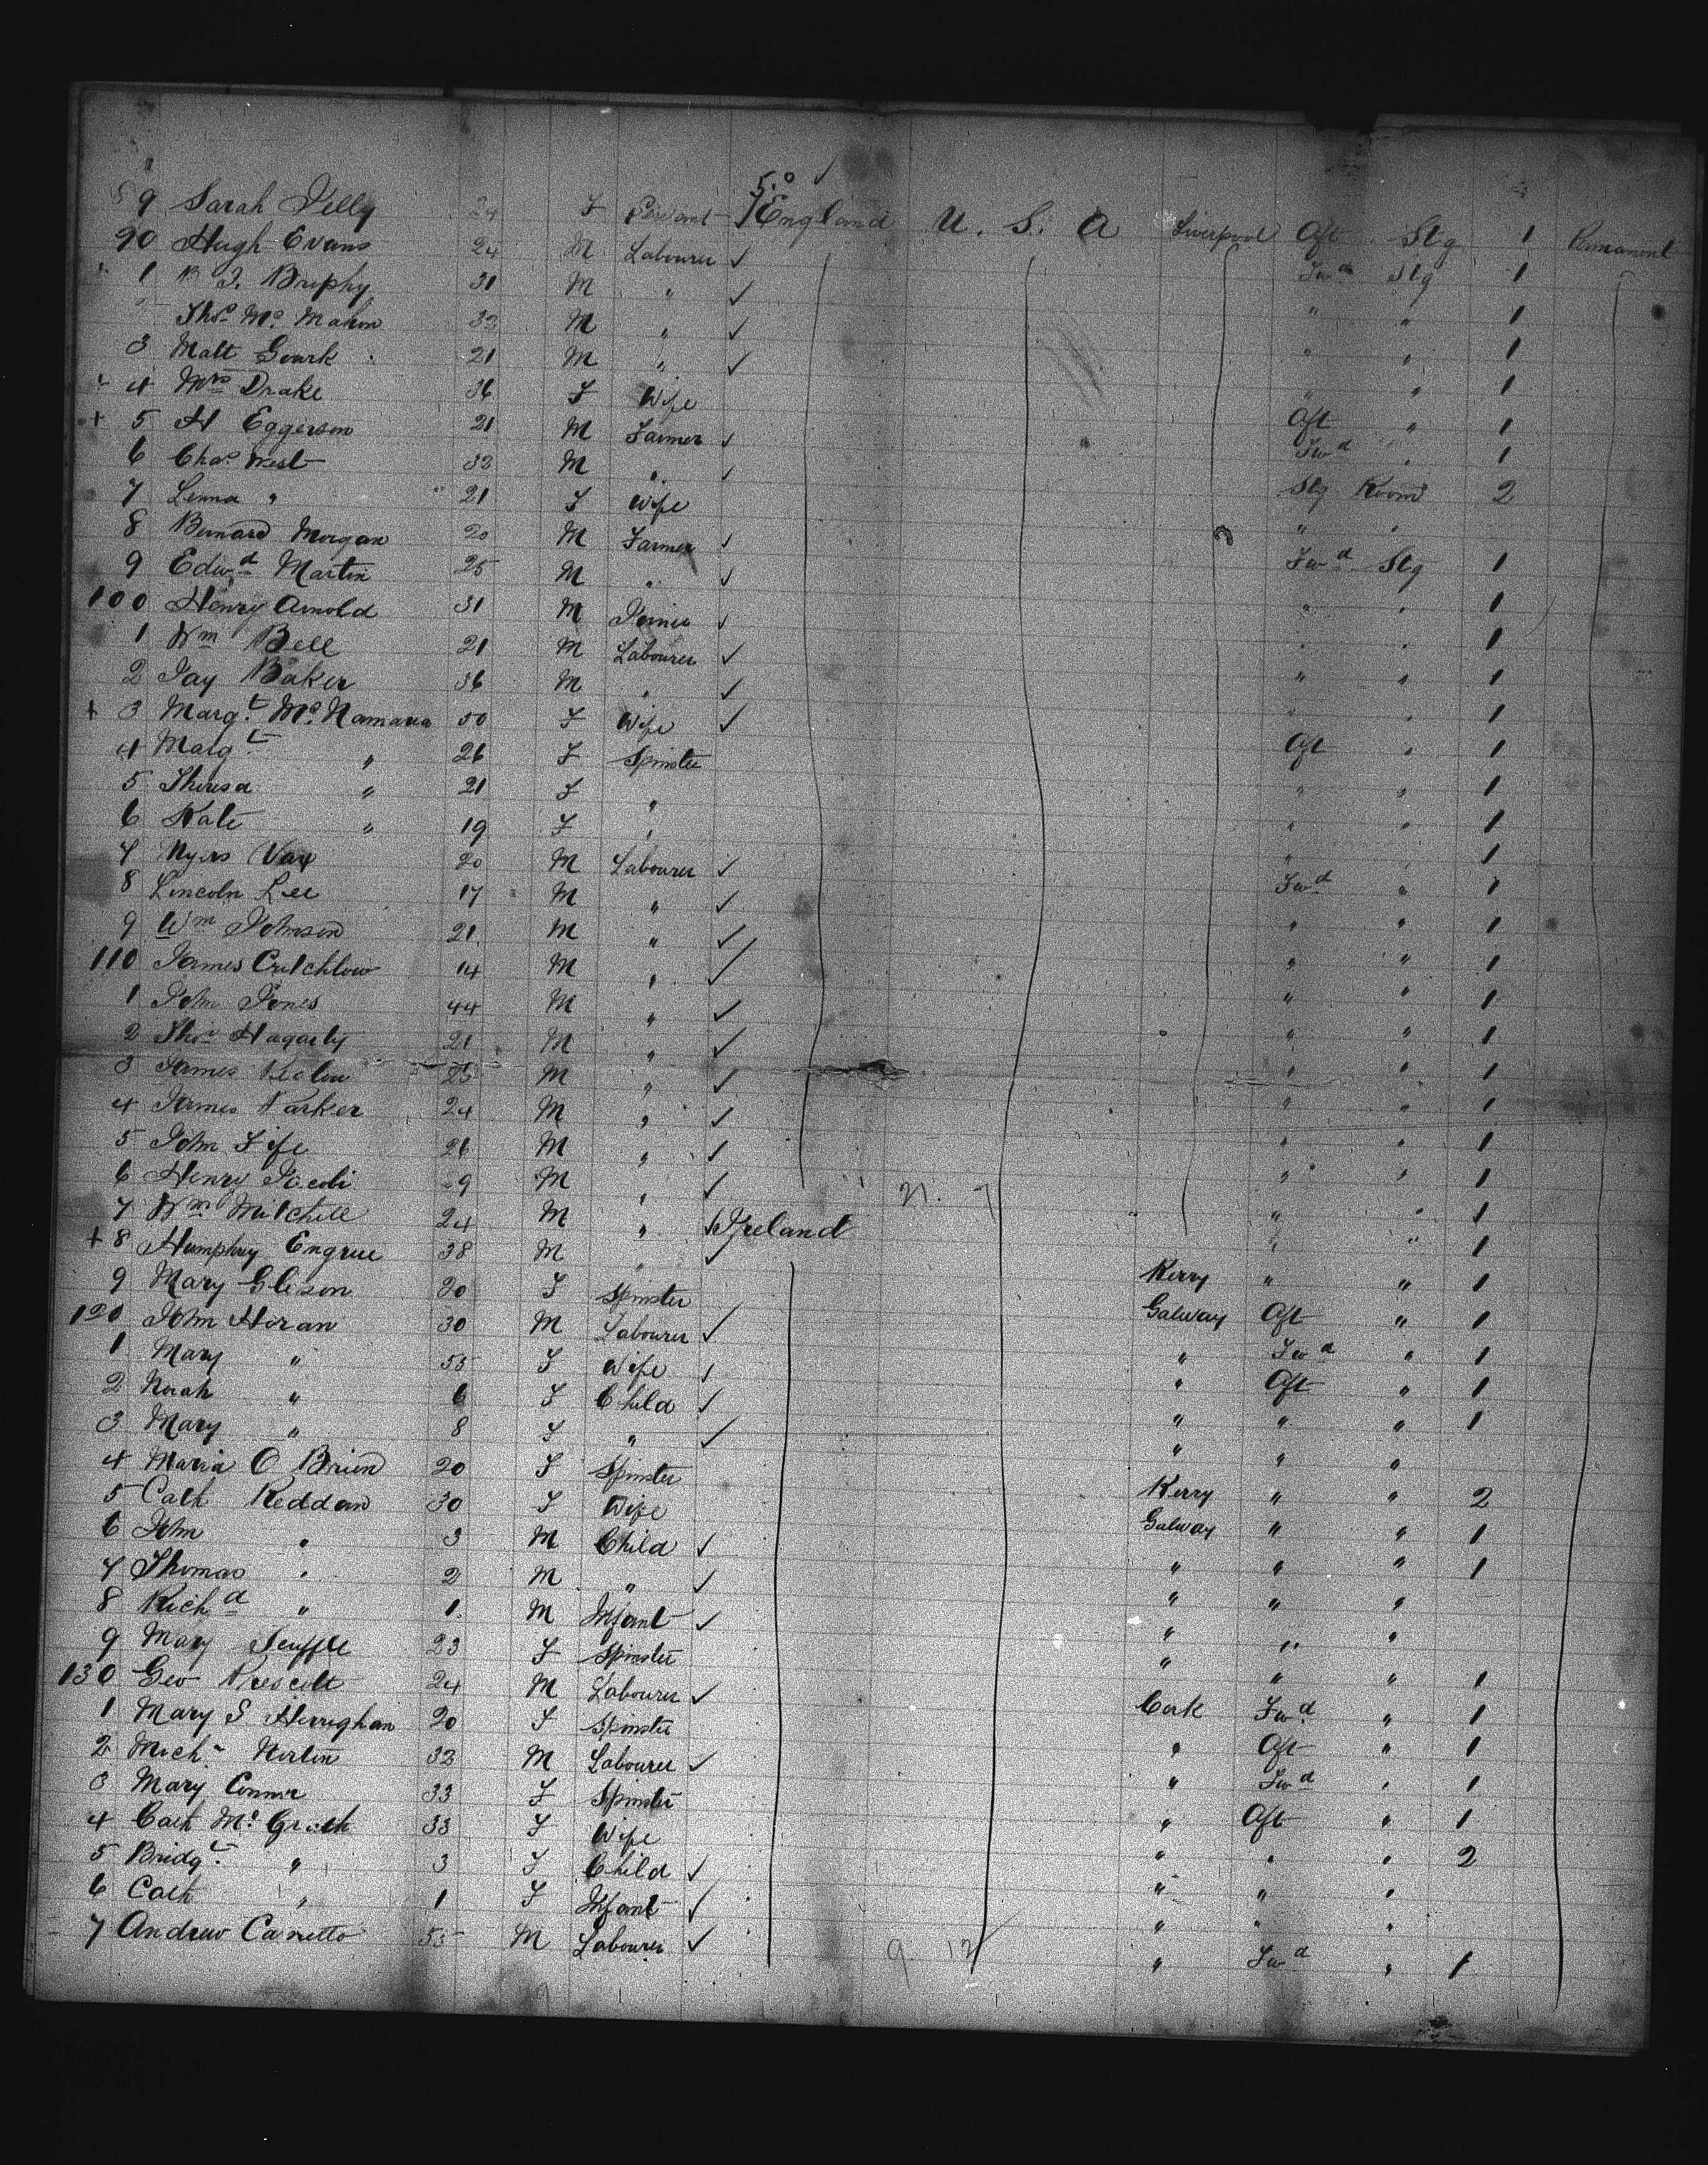 5.0 ✓
9 Sarah Jelly 24 F Servant England U. S. A Liverpool Aft Stg 1 Permanent
90 Hugh Evans 24 M Labourer ✓ Fwd Stg 1
1 Briphy 31 M " ✓ " " 1
Thos Mc Mahon 32 M " ✓ " " 1
3 Matt Gourk 21 M " ✓ " " 1
4 Mrs Drake 36 F Wife Aft " 1
+ 5 H Eggerson 21 M Farmer ✓ Fwd " 1
6 Chas West 32 M " ✓ Stg Room 2
7 Lenna " 21 F Wife " "
8 Bernard Morgan 20 M Farmer ✓ Fwd Stg 1
9 Edwd Martin 25 M " ✓ " " 1
100 Henry Arnold 31 M Joiner ✓ " " 1
1 Wm Bell 21 M Labourer ✓ " " 1
2 Jay Baker 36 M " ✓ " " 1
+ 3 Margt Mc Namara 50 F Wife ✓ Aft " 1
4 Margt " 26 F Spinster " " 1
5 Theresa " 21 F " " " 1
6 Kate " 19 F " " " 1
7 Myers Vax 20 M Labourer ✓ Fwd " 1
8 Lincoln Lee 17 M " ✓ " " 1
9 Wm Johnson 21 M " ✓ " " 1
110 James Critchlow 14 M " ✓ " " 1
1 John Jones 44 M " ✓ " " 1
2 Thos Hagarty 21 M " ✓ " " 1
3 James 25 M " ✓ " " 1
4 James Parker 24 M " ✓ " " 1
5 John Fife 26 M " ✓ " " 1
6 Henry Jacobi 9 M " ✓ " " 1
7 Wm Mitchell 24 M " ✓ Ireland " " 1
+ 8 Humphrey Engrue 38 M " ✓ Kerry " " 1
9 Mary Glison 20 F Spinster Galway Aft " 1
120 John Horan 30 M Labourer ✓ " Fwd " 1
1 Mary " 55 F Wife ✓ " Aft " 1
2 Norah " 6 F Child ✓ " " " 1
3 Mary " 8 F " ✓ " " "
4 Maria O Brien 20 F Spinster Kerry " " 2
5 Cath Keddan 30 F Wife Galway " " 1
6 John " 3 M Child ✓ " " " 1
7 Thomas " 2 M " ✓ " " "
8 Richd " 1 M Infant ✓ " " "
9 Mary Scuffle 23 F Spinster " " " 1
130 Geo Prescott 24 M Labourer ✓ Cork Fwd " 1
1 Mary S Herrighan 20 F Spinster " Aft " 1
2 Michl Nerlin 32 M Labourer ✓ " Fwd " 1
3 Mary Connor 33 F Spinster " Aft " 1
4 Cath Mc Grath 33 F Wife " " " 2
5 Bridgt " 3 F Child ✓ " " "
6 Cath " 1 F Infant ✓ " " "
7 Andrew Canetto 55 M Labourer ✓ 9 12 " Fwd " 1